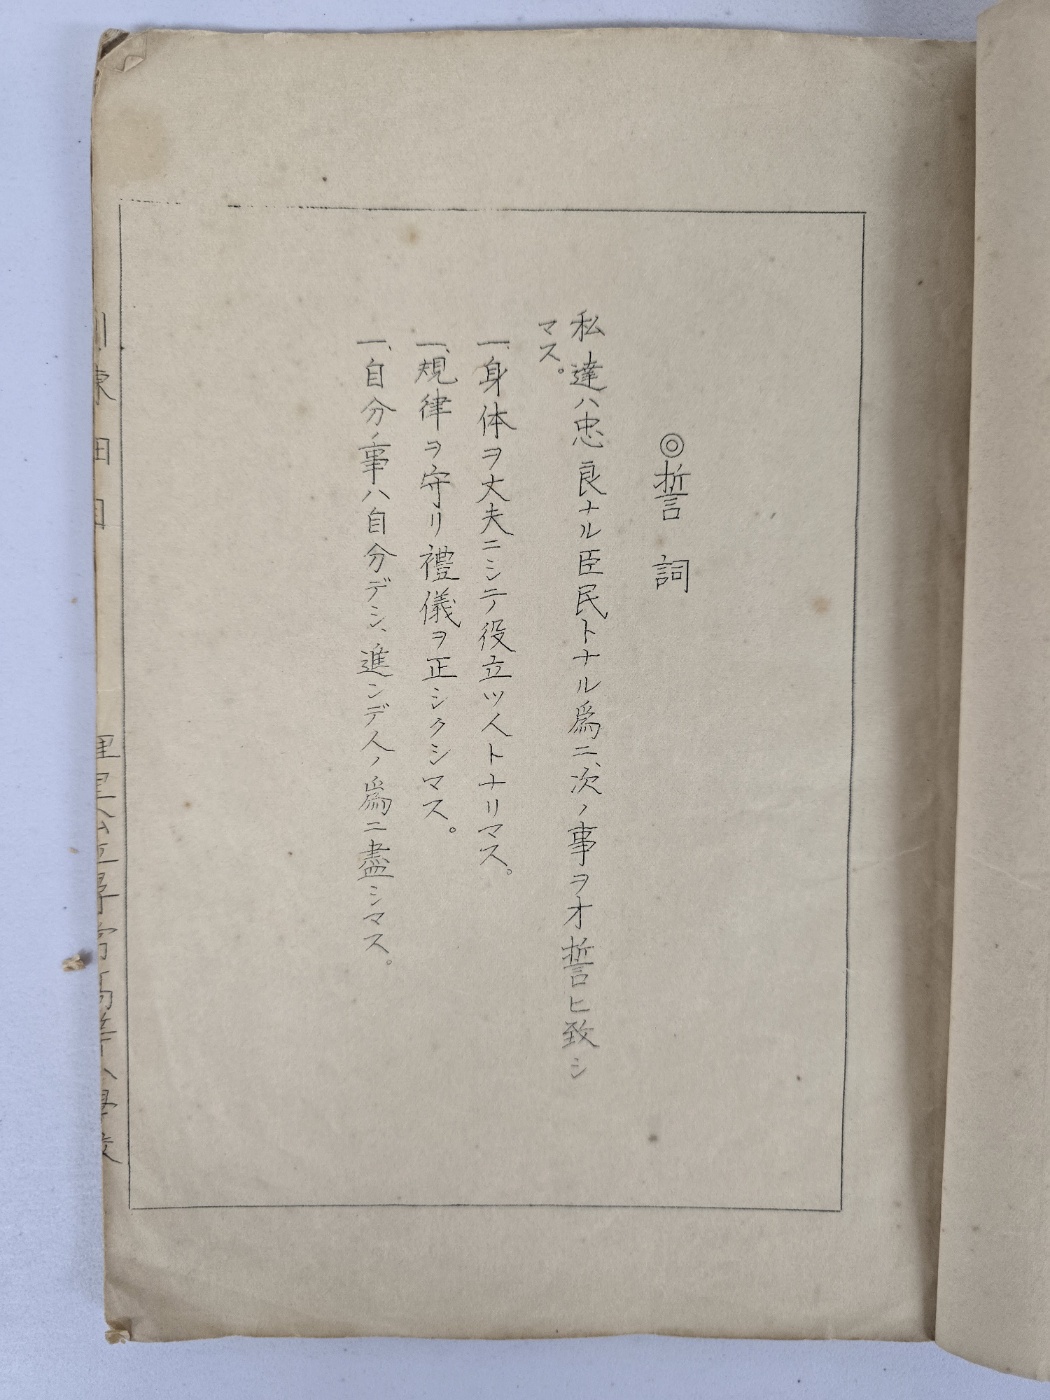 ◎誓詞
私達ハ忠良ナル臣民トナル爲ニ、次ノ事ヲオ誓ヒ致シ
マス。
一、身体ヲ丈夫ニシテ役立ツ人トナリマス。
一、規律ヲ守リ禮儀ヲ正シクシマス。
一、自分ノ事ハ自分デシ、進ンデ人ノ爲ニ盡シマス。